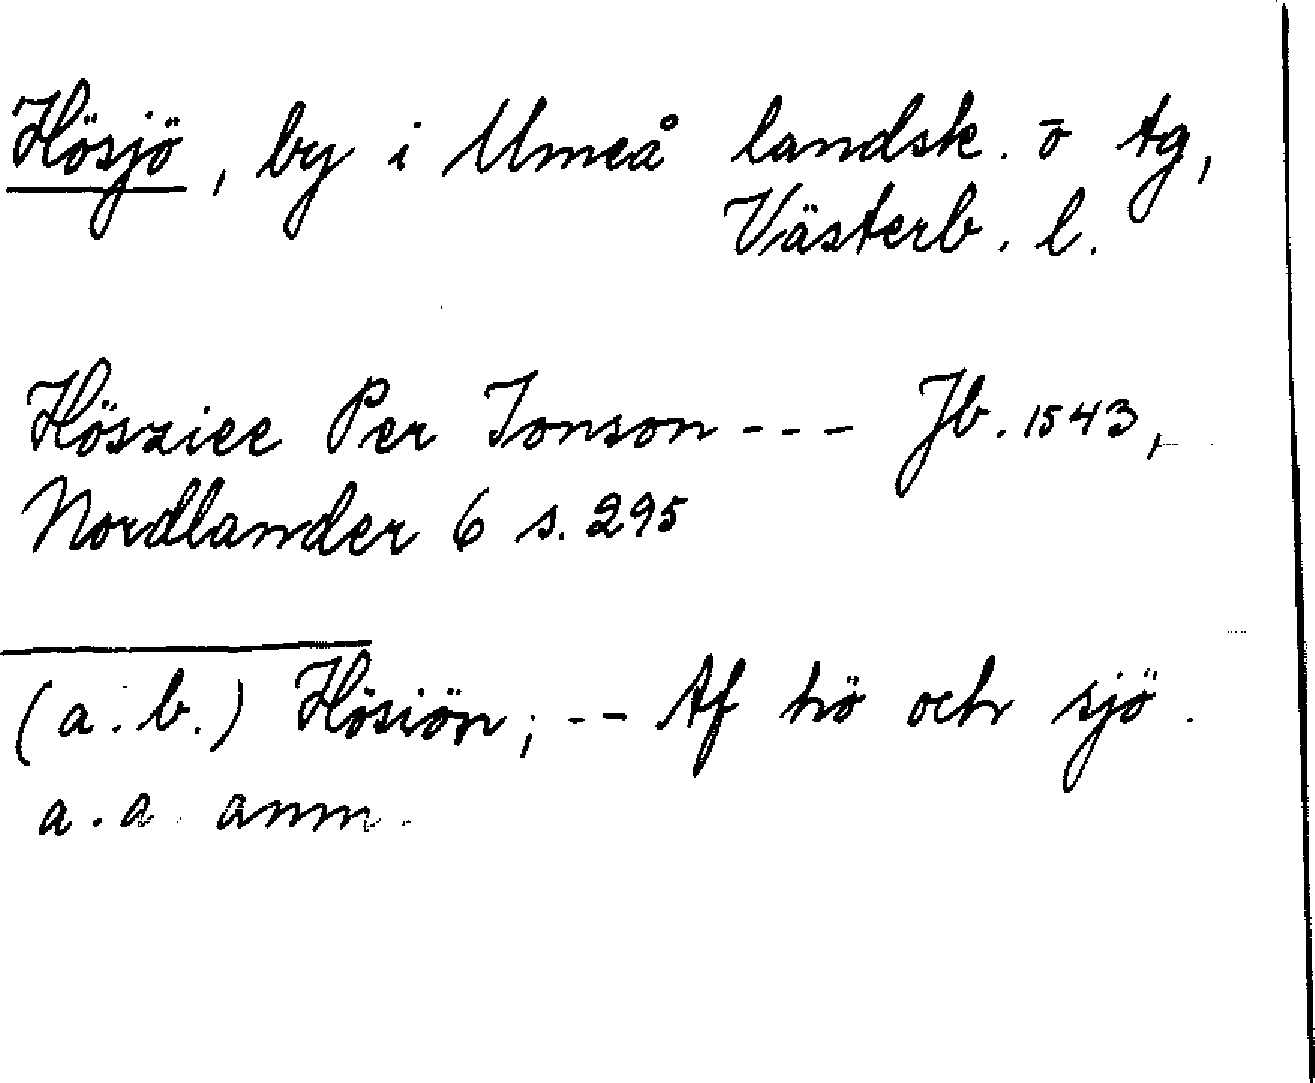 Hösjö, by i Umeå landsk. o tg,
Västerb. l.
Hösziee Per Jonson --- Jb. 1543,
Nordlander 6 s. 295
(a. b.) Hösiön; -- Af hö och sjö.
a. a. anm.